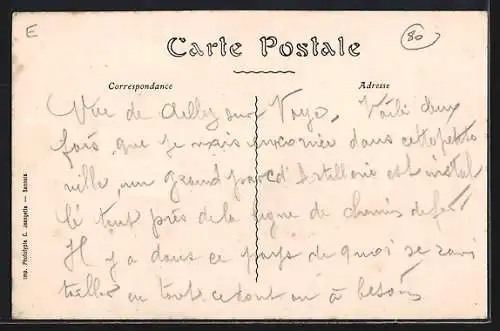 E
80
Carte Postale
Correspondance
Adresse
Vue de Ailly sur Noye. Voilà deux
fois que je vais en corvée dans cette petite
ville, un grand parc d'Artillerie est instal
lé tout près de la ligne de chemin de fer.
Il y a dans ce pays de quoi se ravi
tailler en tout ce dont on a besoin
Imp. Phototypie C. Jeangette — Bannois